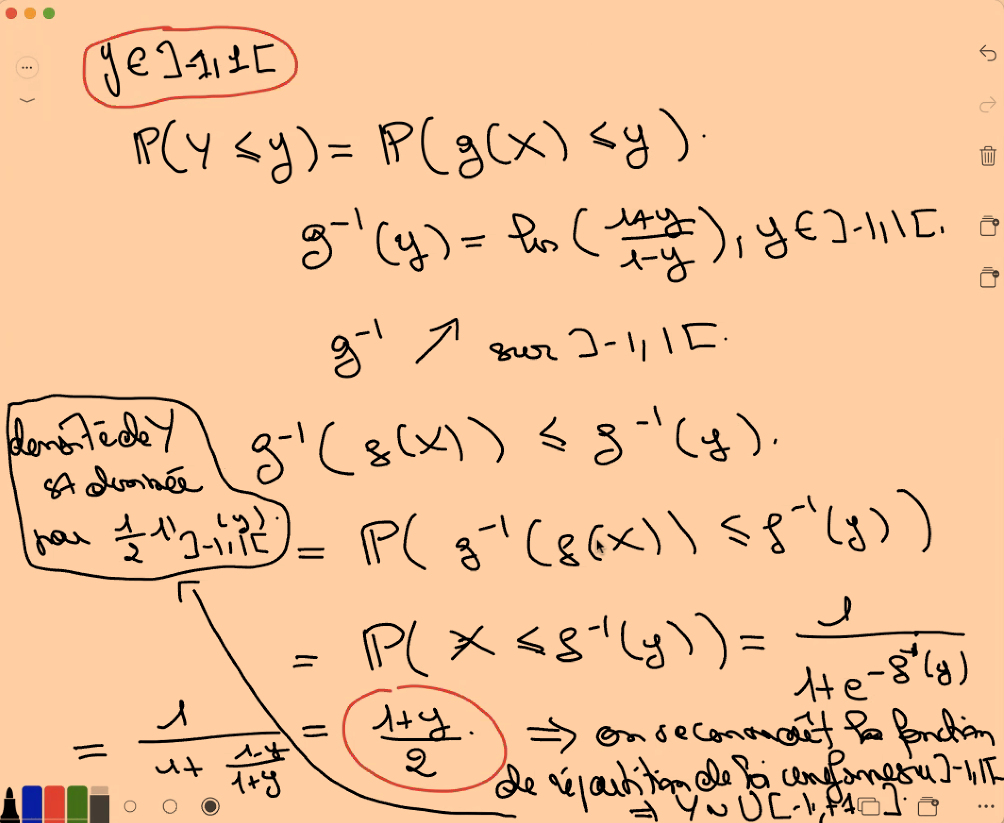 y ∈ ]-1,1[
P(Y ≤ y) = P(g(X) ≤ y).
g⁻¹(y) = ln(1+y / 1-y), y ∈ ]-1,1[.
g⁻¹ ↗ sur ]-1,1[.
g⁻¹(g(X)) ≤ g⁻¹(y).
densité de Y
est donnée
par 1/2 𝟙]-1,1[(y).
= P(g⁻¹(g(X)) ≤ g⁻¹(y))
= P(X ≤ g⁻¹(y)) = 1 / 1+e^-g⁻¹(y)
= 1 / 1+ 1-y/1+y = 1+y / 2. ⇒ on reconnaît la fonction
de répartition de loi uniforme su ]-1,1[
⇒ Y ~ U[-1,+1].